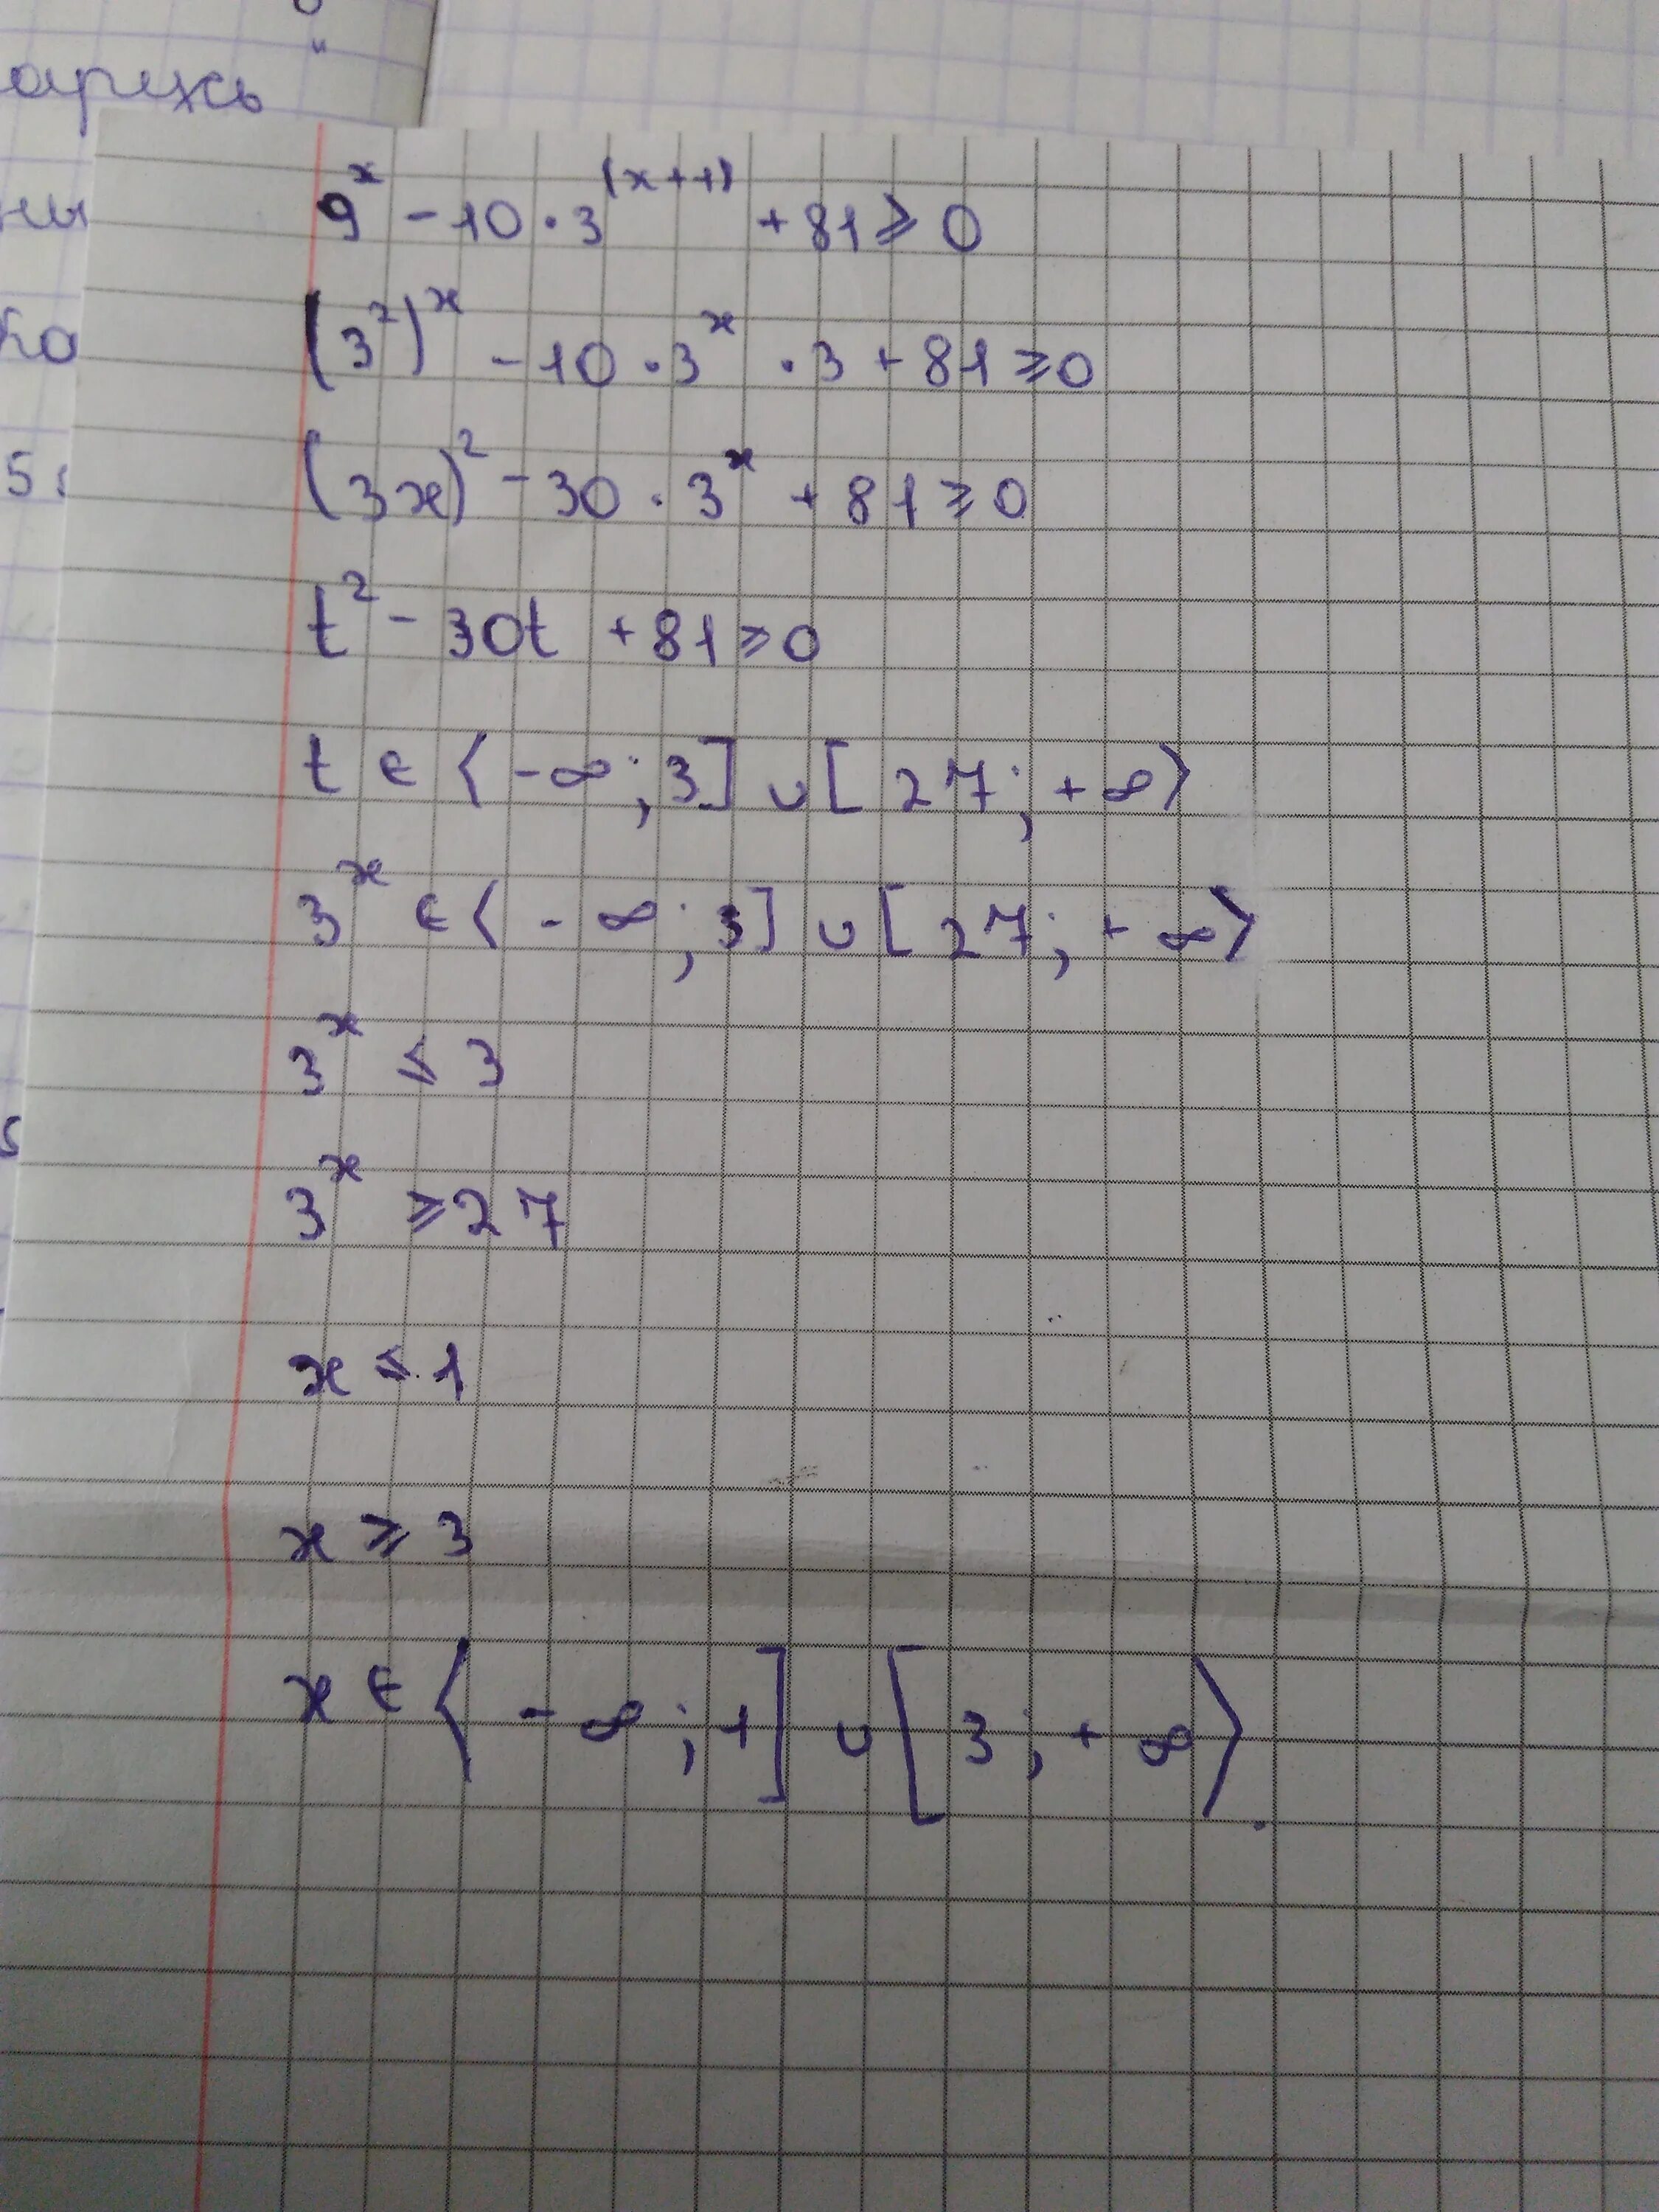 арихсь
ны
ко
5
9^x - 10 · 3^(x+1) + 81 ≥ 0
(3²)^x - 10 · 3^x · 3 + 81 ≥ 0
(3x)² - 30 · 3^x + 81 ≥ 0
t² - 30t + 81 ≥ 0
t ∈ ⟨-∞; 3] ∪ [27; +∞⟩
3^x ∈ ⟨-∞; 3] ∪ [27; +∞⟩
3^x ≤ 3
3^x ≥ 27
x ≤ 1
x ≥ 3
x ∈ ⟨-∞; 1] ∪ [3; +∞⟩.